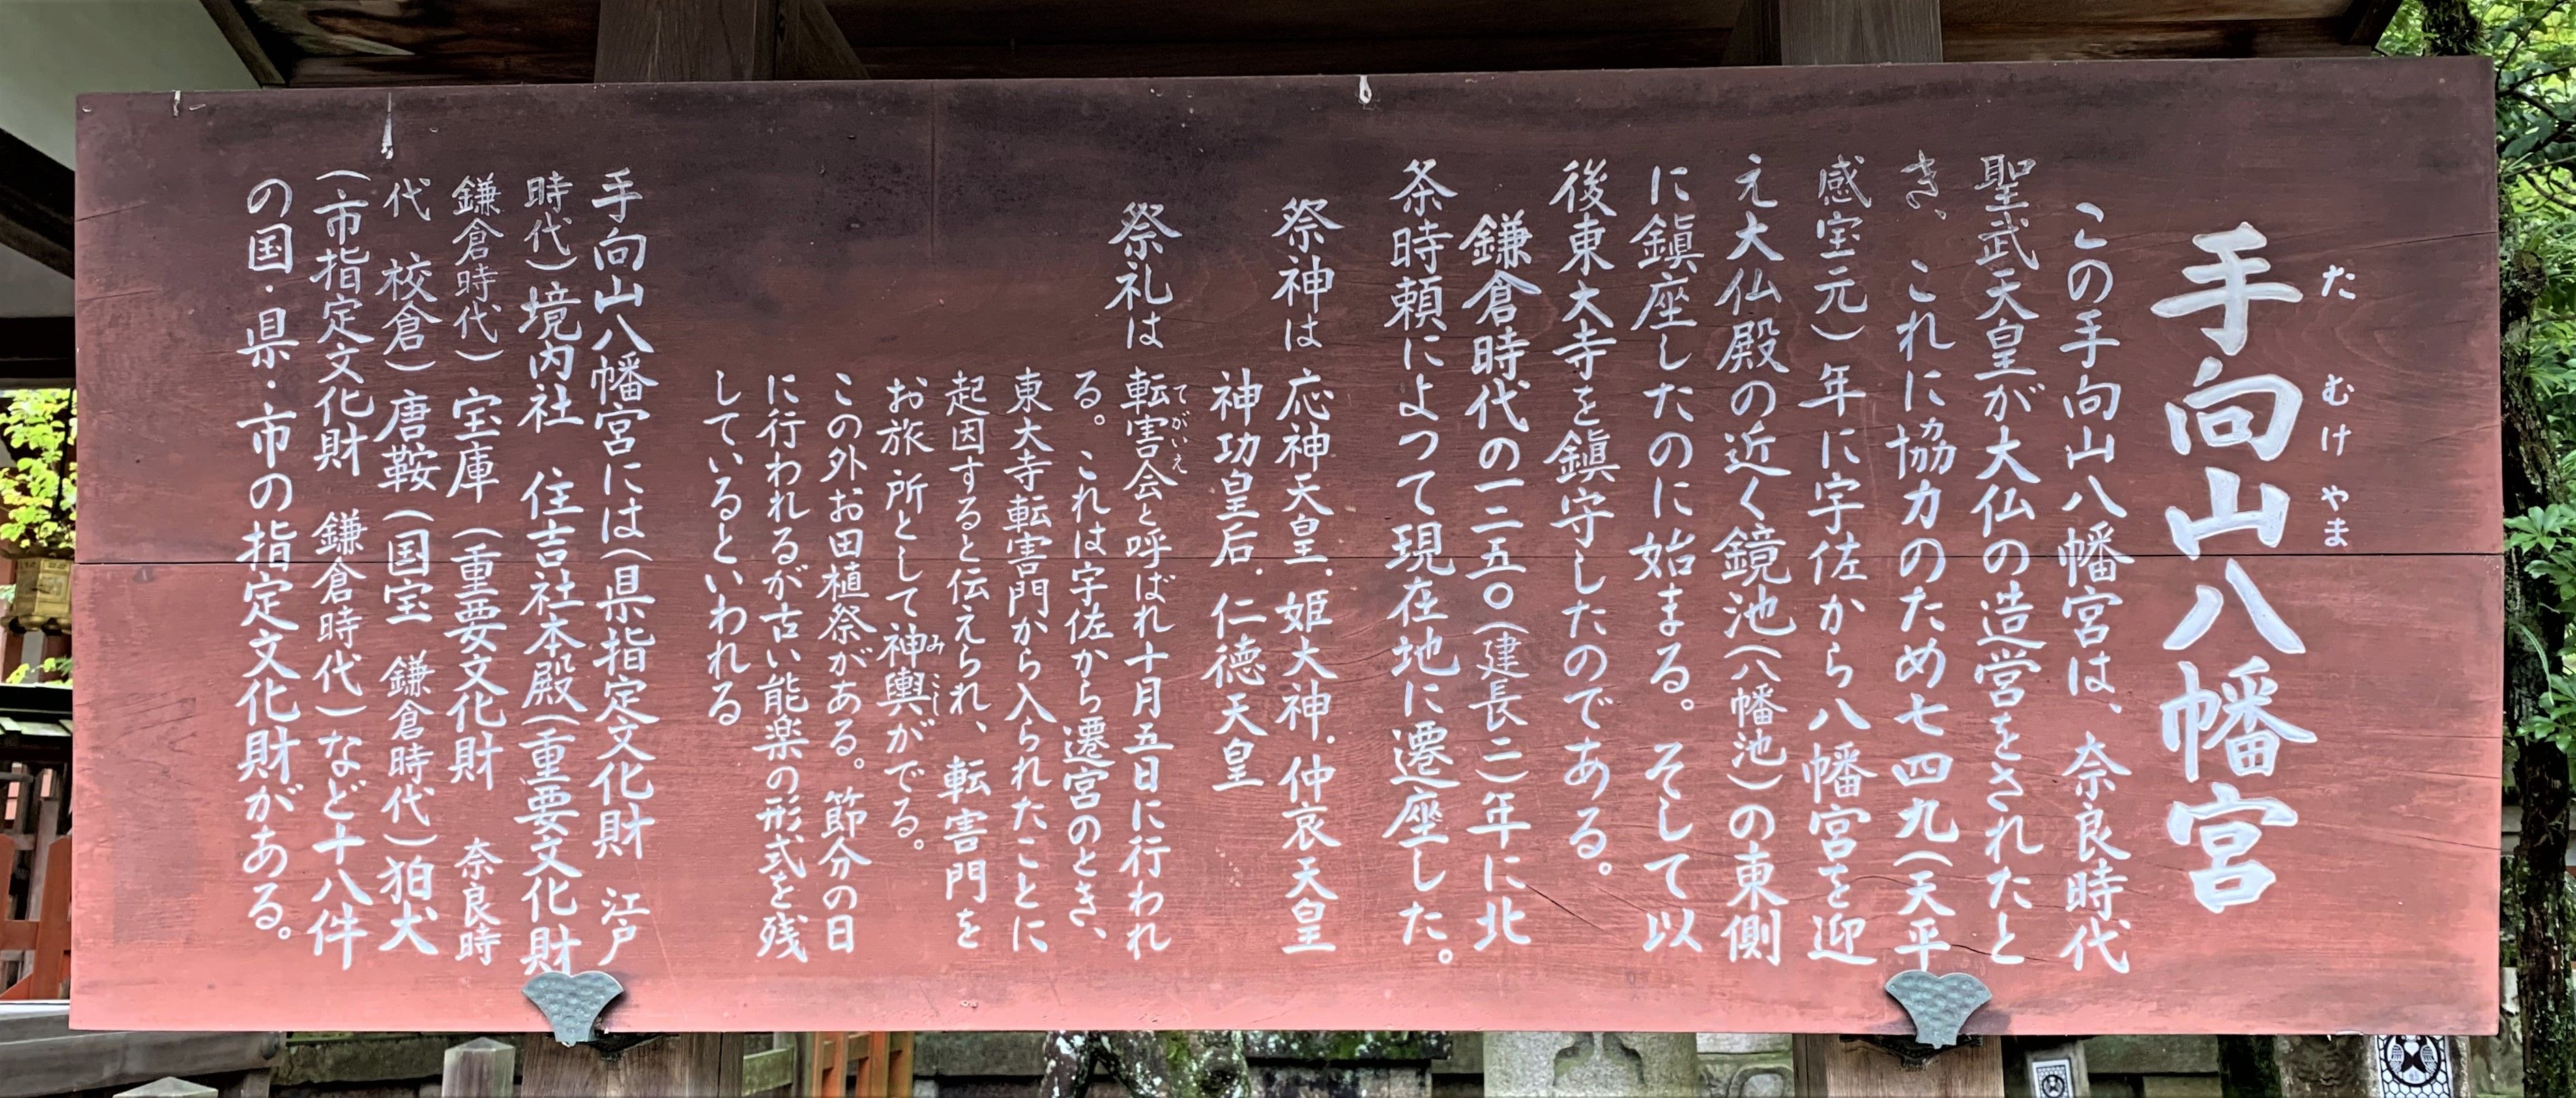 手向山八幡宮
たむけやま
この手向山八幡宮は、奈良時代
聖武天皇が大仏の造営をされたと
き、これに協力のため七四九(天平
感宝元)年に宇佐から八幡宮を迎
え大仏殿の近く鏡池(八幡池)の東側
に鎮座したのに始まる。そして以
後東大寺を鎮守したのである。
鎌倉時代の一二五〇(建長二)年に北
条時頼によって現在地に遷座した。
祭神は 応神天皇.姫大神.仲哀天皇
神功皇后.仁徳天皇
祭礼は 転害会と呼ばれ十月五日に行われ
てがいえ
る。これは宇佐から遷宮のとき、
東大寺転害門から入られたことに
起因すると伝えられ、転害門を
お旅所として神輿がでる。
みこし
この外お田植祭がある。節分の日
に行われるが古い能楽の形式を残
しているといわれる
手向山八幡宮には(県指定文化財 江戸
時代)境内社 住吉社本殿(重要文化財
鎌倉時代)宝庫(重要文化財 奈良時
代 校倉)唐鞍(国宝 鎌倉時代)狛犬
(市指定文化財 鎌倉時代)など十八件
の国・県・市の指定文化財がある。